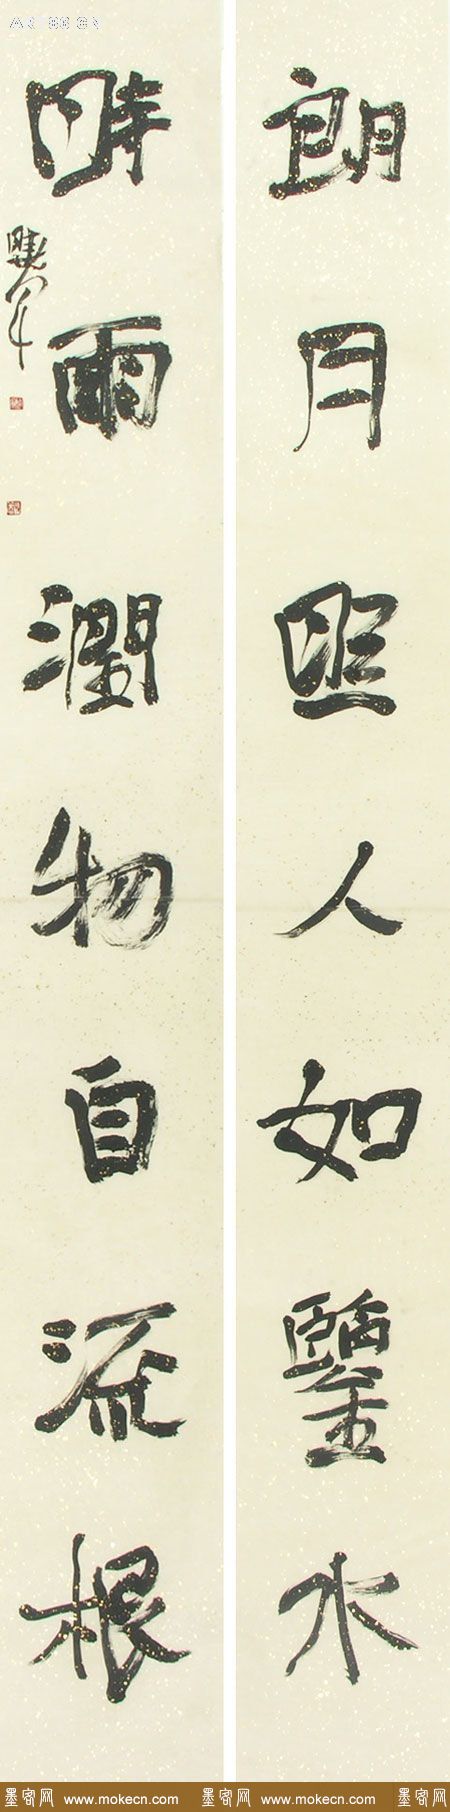 朗月照人如鑒水
時雨潤物自流根
墨客网 www.mokecn.com 墨客网 www.mokecn.com 墨客网